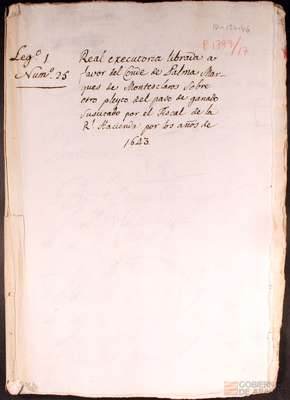 P.1793/17
Legº. 1
Numº. 25
Real executoria librada a
favor del Conde de Palma Mar-
ques de Montesclaros sobre
otro pleyto del paso de ganado
suscitado por el Fiscal de la
Rl. Hacienda por los años de
1643.
GOBIERNO
DE ARAGON